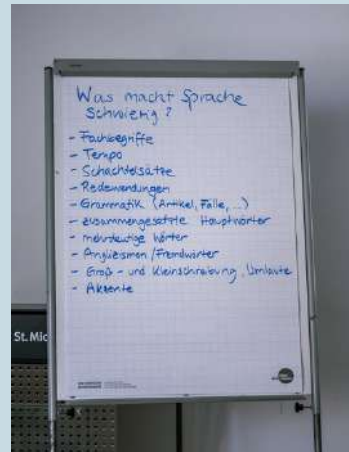 Was macht Sprache
schwierig?
- Fachbegriffe
- Tempo
- Schachtelsätze
- Redewendungen
- Grammatik (Artikel, Fälle, ...)
- zusammengesetzte Hauptwörter
- mehrdeutige Wörter
- Anglizismen/Fremdwörter
- Groß- und Kleinschreibung, Umlaute
- Akzente
St. Mic